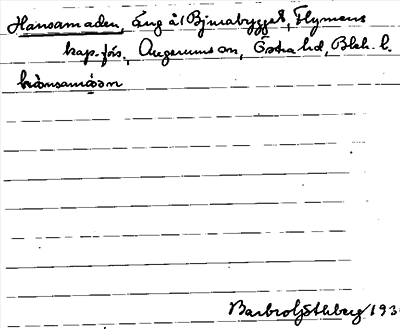 Hansamaden, äng åt Bjurabygget, Flymens
kap.förs., Augerums sn, Östra hd, Blek. l.
hànsamáðn
Barbro Göthberg 193